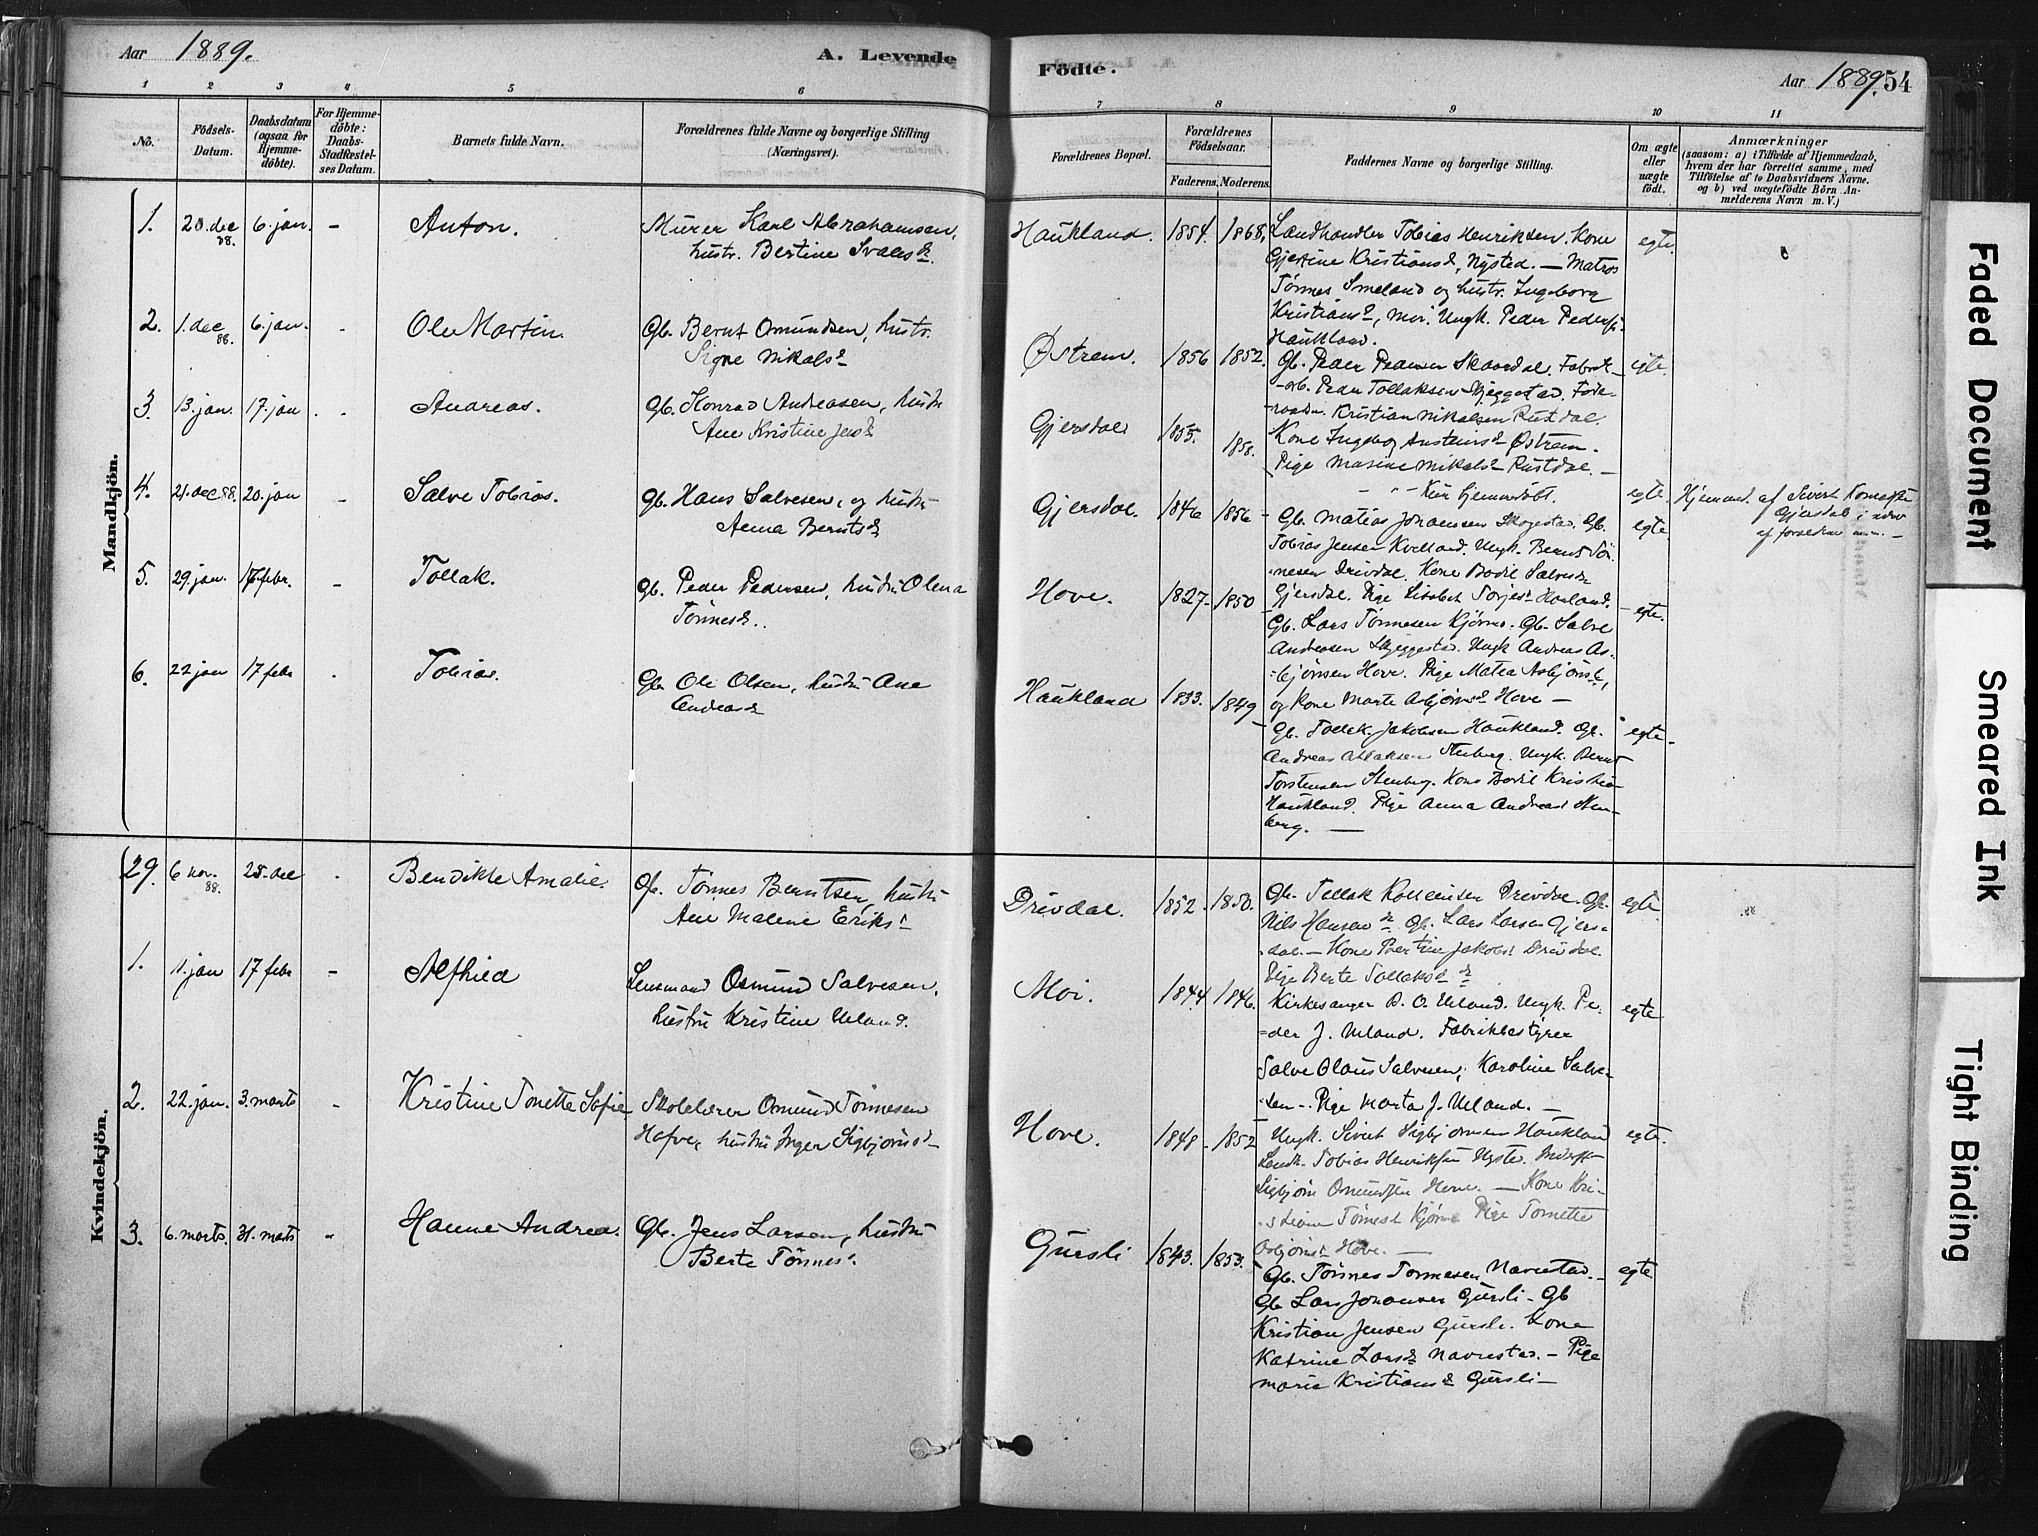 Aar 1889.
A. Levende
Födte.
Aar 1889. 54
1 2 3 4 5 6 7 8 9 10 11
No.
Födsels-
Datum.
Daabsdatum
(ogsaa for
Hjemme-
döbte).
For Hjemme-
döbte:
Daabs-
Stadfæstel-
ses Datum.
Barnets fulde Navn.
Forældrenes fulde Navne og borgerlige Stilling
(Næringsvei).
Forældrenes Bopæl.
Forældrenes
Födselsaar.
Faderens. Moderens.
Faddernes Navne og borgerlige Stilling.
Om ægte
eller
uægte
født.
Anmærkninger
(saasom: a) i Tilfælde af Hjemmedaab,
hvem der har forrettet samme, med
Tilföielse af to Daabsvidners Navne,
og b) ved uægtefödte Börn An-
melderens Navn m. V.)
Mandkjön.
1. 20. dec 88. 6. jan. - Anton.
Murer Karl Abrahamsen,
hustr. Bertine Svales d.
Haukland. 1854. 1868.
Landhandler Tobias Henriksen. Kone
Gjertine Kristiansd, Nysted. - Matros
Tønnes Smeland og hustr. Ingeborg
Kristiansd, Moi. Ungk. Peder Peders.
Haukland.
egte.
2. 1. dec 88. 6. jan. - Ole Martin.
Gb. Bernt Omundsen, hustr.
Signe Nikalsd
Østrem. 1856 1852.
Gb. Peder Pedersen Skaardal. Fabrik-
-arb. Peder Tollaksen Skjeggestad.
Kristian Nikalsen Rustdal.
Kone Ingeborg Østrem.
Pige Masine Nikalsd Rustdal. -
egte.
3. 13. jan. 17. jan - Andreas.
Gb. Konrad Andreasen, hustr
Ane Kristine Jensd
Gjersdal 1855. 1858.
Kun hjemmedøbt.
egte.
Hjemmed. af Sivert
Gjersdal
4. 21. dec 88. 20. jan - Salve Tobias.
Gb. Hans Salvesen, og hustr
Anna Berntsd
Gjersdal. 1846 1856
Gb. Matias Johansen Skogestad. Gb.
Tobias Jensen Kvelland. Ungk. Bernt Tøn-
nesen Drivdal. Kone Bodil Salvesd
Gjersdal. Pige Lisabet Torjesd Haaland.
egte
5. 29. jan. 17 febr. - Tollak.
Gb. Peder Pedersen, hustr. Olena
Tønnesd.
Hove. 1827- 1850
Gb. Lars Tønnesen Kjørmo. Gb. Salve
Andreasen Skjeggestad. Ungk Andreas As-
=bjørnsen Hove. Pige Matea Asbjørnsd,
og Kone Marte Asbjørnsd Hove -
egte.
6. 22 jan 17 febr . Tobias.
Gb. Ole Olsen, hustr. Ane
Andreasd
Haukland 1833. 1849
Gb. Tollak Jakobsen Haukland. Gb.
Andreas Stenberg. Ungk. Bernt
Torstensen Stenberg. Kone Bodil Kristia-
Haukland. Pige Anna Andreasd Sten-
berg. -
egte.
Kvindekjön.
29. 6 nov. 88. 25. dec . Bendikte Amalie.
Gb. Tønnes Berntsen, hustr.
Ane Malene Eriksd
Drivdal. 1852- 1850.
Gb. Tollak Drivdal. Gb.
Nils Hansen Gb. Lars Larsen Gjers-
-dal. - Kone Bertine Jakobsd Drivdal.
Pige Berte Tollaksd
egte
1. 1. jan 17 febr - Alfhild
Lensmand Osmund Salvesen,
hustru Kristine Ueland.
Moi. 1844. 1846.
Kirkesanger O. O. Ueland. Ungk. Pe-
=der J. Ueland. Fabrikbestyrer
Salve Olaus Salvesen, Karoline Salve-
sen -. Pige Marta J. Ueland. -
egte
2. 22. jan. 3. marts - Kristine Tonette Sofie
Skolelærer Omund Tønnesen
Hofve, hustru Inger Sigbjørnsd
Hove. 1848- 1852
Ungk. Sivert Sigbjørnsen Haukland
Landh. Tobias Henriksen Nysted.
Sigbjørn Osmundsen Hove. - Kone Kri-
-stiane Tønnesd Kjørmo Pige Tonette
Asbjørnsd Hove. -
egte.
3. 6. marts. 31. marts - Hanne Andrea.
Gb. Jens Larsen, hustru
Berte Tønnesd.
Gursli 1843. 1853.
Gb. Tønnes Tønnesen Navrestad. -
Gb Lars Johansen Gursli - Gb
Kristian Jensen Gursli. Kone
Katrine Larsd Navrestad. - Pige
Marie Kristiansd Gursli -
egte
Faded Document
Smeared Ink
Tight Binding